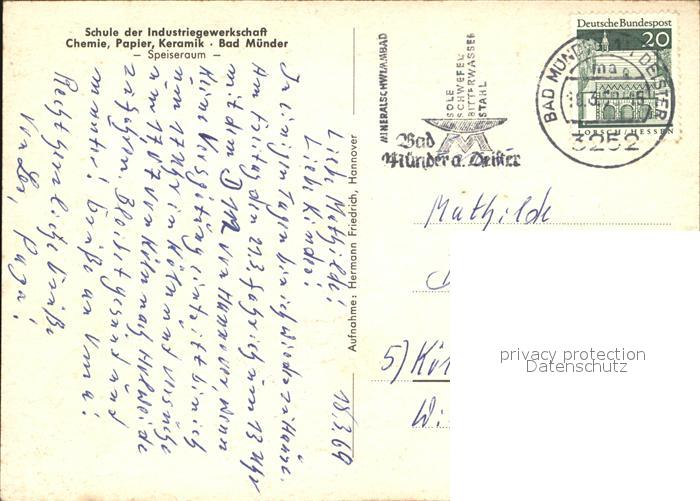 Schule der Industriegewerkschaft
Chemie, Papier, Keramik · Bad Münder
– Speiseraum –
18.3.69
Liebe Mathilde!
Liebe Kinder!
In einigen Tagen bin ich wieder zu Hause.
Am Freitag den 21.3. fahre ich um 13 Uhr
mit dem D von Hannover, wenn
keine Verspätung eintritt bin ich
um 17 Uhr in Köln und versuche
um 17,07 von Köln nach Holweide
zu fahren. Bleibt gesund und
munter! Grüße an Oma!
Recht herzliche Grüße
Von Papa!
Aufnahme: Hermann Friedrich, Hannover
MINERALSCHWIMMBAD
SOLE
SCHWEFEL
BITTERWASSER
STAHL
Bad
Münder a. Deister
BAD MÜNDER DEISTER
3252
Deutsche Bundespost
20
LORSCH/HESSEN
Mathilde
5) Köl
Wi
privacy protection
Datenschutz